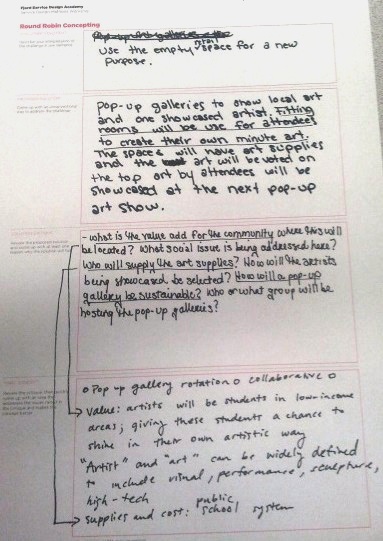 Fjord Service Design Academy
Round Robin Concepting
use the empty retail space for a new
purpose.
Pop-up galleries to show local art
and one showcased artist. Fitting
rooms will be use for attendees
to create their own minute art.
The space will have art supplies
and the art will be voted on
the top art by attendees will be
showcased at the next pop-up
art show.
- what is the value add for the community where this will
be located? What social issue is being addressed here?
Who will supply the art supplies? How will the artists
being showcased be selected? How will a pop-up
gallery be sustainable? Who or what group will be
hosting the pop-up galleries?
o Pop up gallery rotation o collaborative o
value: artists will be students in low-income
areas; giving these students a chance to
shine in their own artistic way
"Artist" and "art" can be widely defined
to include visual, performance, sculpture,
high-tech
supplies and cost: public school system